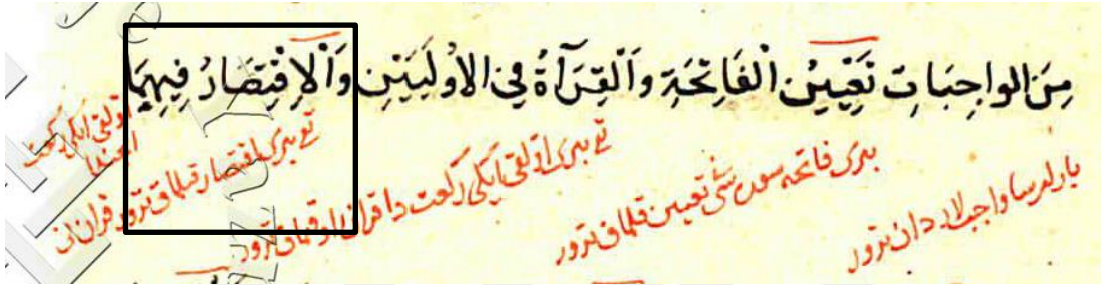 مِنَ الواجِبَاتِ تَعْيِينُ الْفَاتِحَةِ وَالْقِرَآءَةُ فِي الأُولَيَيْنِ وَالْاِقْتِصَارُ فِيهِمَا
بولدرسا واجبلاردان تورور
برى فاتحه سوره سنى تعيين قلماق تورور
تى برى اولقى ايكى ركعت دا قران اوقماق تورور
تى برى اقتصار قيلماق تورور قران نى
اولقى ايكى ركعت